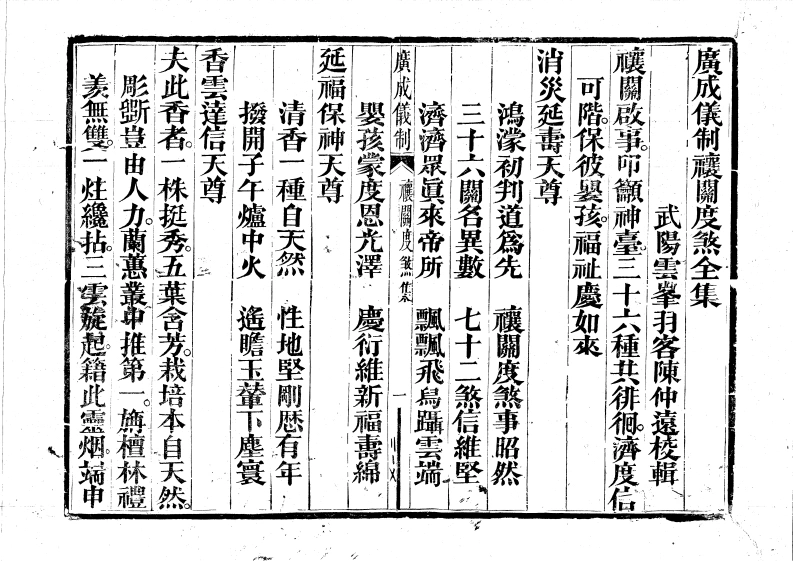 廣成儀制禳關度煞全集
武陽雲峯羽客陳仲遠校輯
禳關啟事。叩籲神臺。三十六種共徘徊。濟度信
可階。保彼嬰孩。福祉慶如來
消災延壽天尊
鴻濛初判道為先 禳關度煞事昭然
三十六關名異數 七十二煞信維堅
濟濟眾真來帝所 飄飄飛舄躡雲端
嬰孩蒙度恩光澤 慶衍維新福壽綿
廣成儀制 禳關度煞集 一
延福保神天尊
清香一種自天然 性地堅剛歷有年
撥開子午爐中火 遙瞻玉輦下塵寰
香雲達信天尊
夫此香者。一株挺秀。五葉含芳。栽培本自天然。
彫斵豈由人力。蘭蕙叢中推第一。旃檀林禮
羨無雙。一炷纔拈。三雲旋起。籍此靈烟。端申